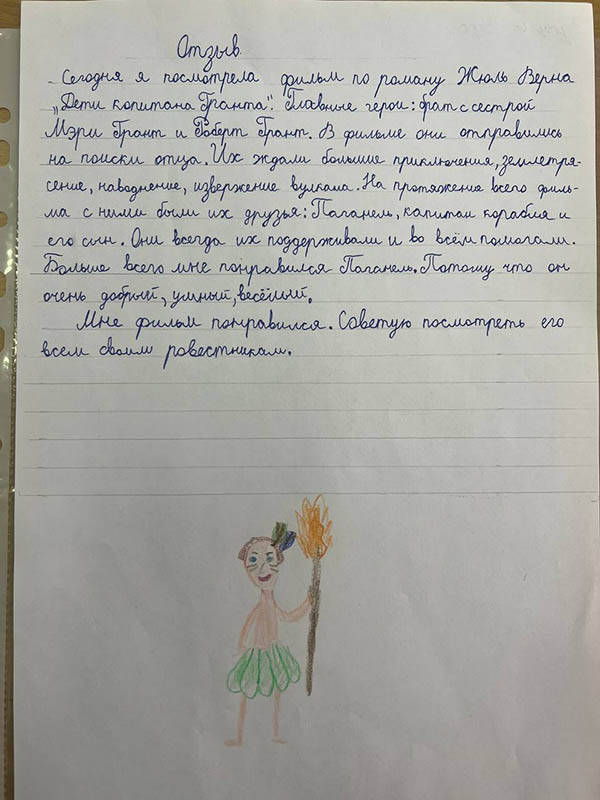 Отзыв
Сегодня я посмотрела фильм по роману Жюль Верна
„Дети капитана Гранта". Главные герои: брат с сестрой
Мэри Грант и Роберт Грант. В фильме они отправились
на поиски отца. Их ждали большие приключения, землетря-
сение, наводнение, извержение вулкана. На протяжение всего филь-
ма с ними были их друзья: Паганель, капитан корабля и
его сын. Они всегда их поддерживали и во всём помогали.
Больше всего мне понравился Паганель. Потому что он
очень добрый, умный, весёлый.
Мне фильм понравился. Советую посмотреть его
всем своим ровестникам.